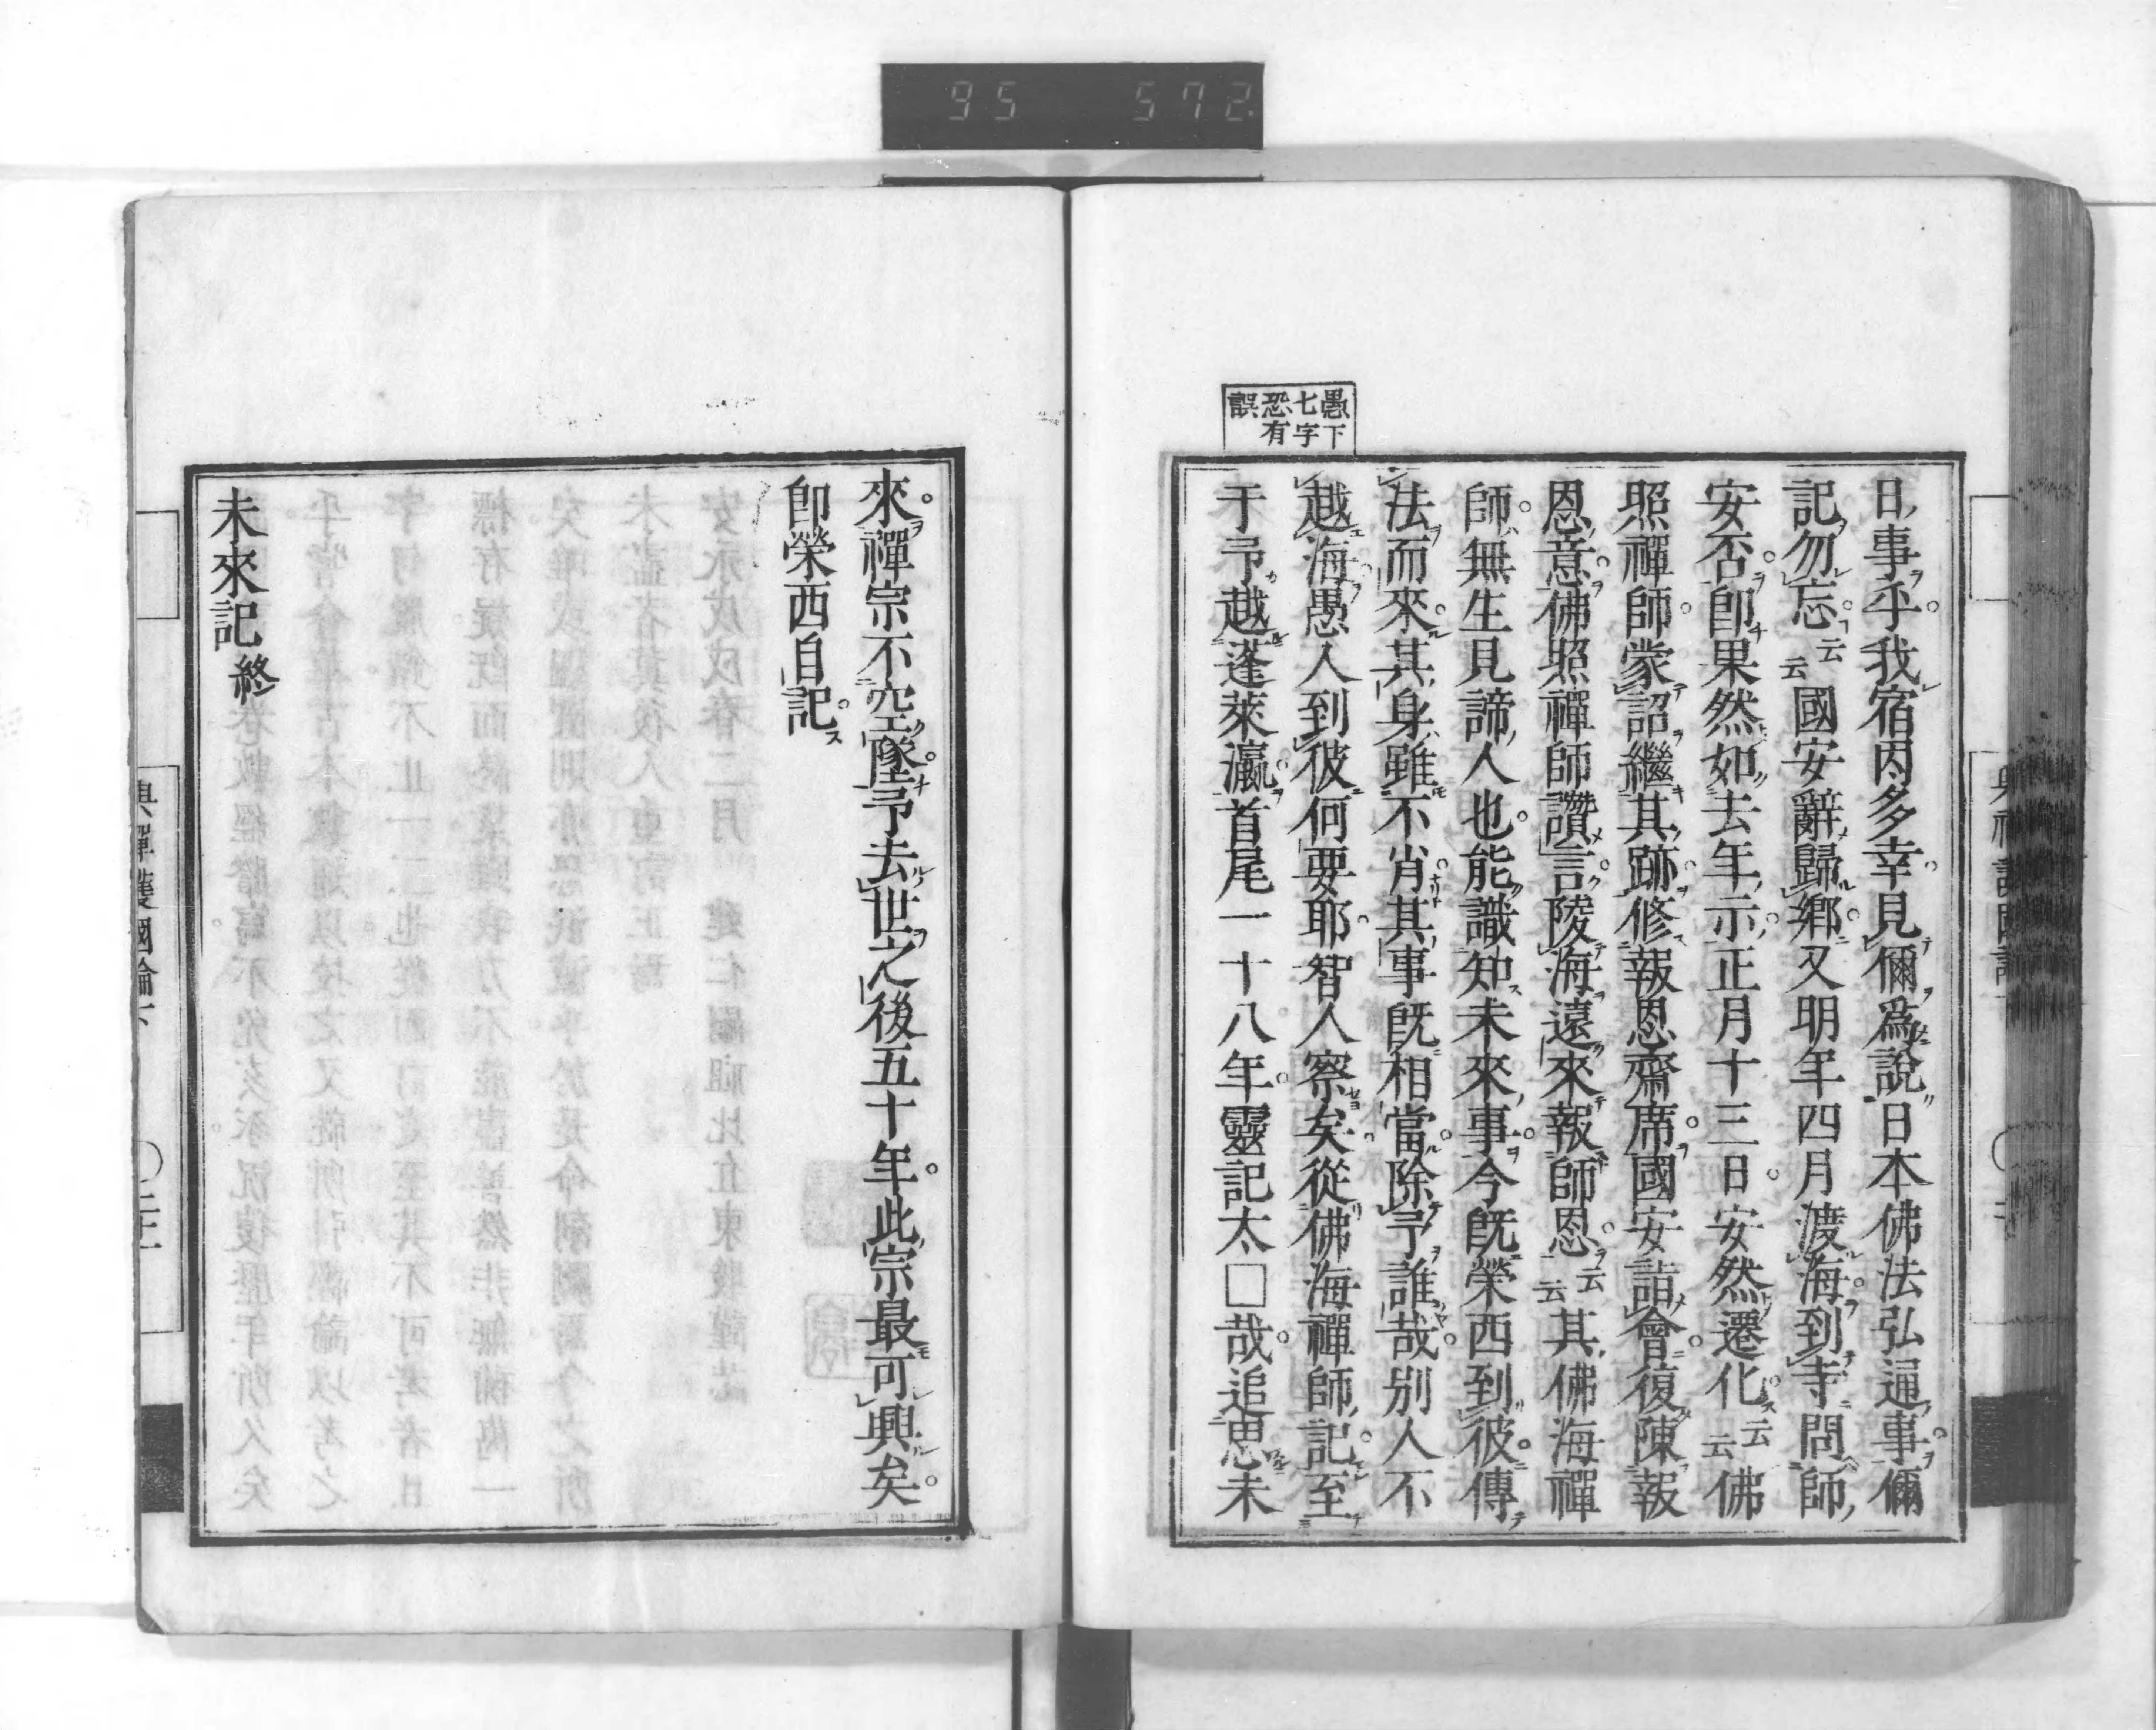 95 572
愚下
七字
恐有
誤
日事乎我宿因多幸見爾爲說日本佛法弘通事爾
記勿忘云云國安辭歸鄉又明年四月渡海到寺問師
安否卽果然如去年示正月十三日安然遷化云云佛
照禪師蒙詔繼其跡修報恩齋席國安詣會復陳報
恩意佛照禪師讚言陵海遠來報師恩云云其佛海禪
師無生見諦人也能識知未來事今既榮西到彼傳
法而來其身雖不肖其事既相當除予誰哉別人不
越海愚人到彼何要耶智人察矣從佛海禪師記至
于予越蓬萊瀛首尾一十八年靈記太□哉追思未
來禪宗不空墜予去世之後五十年此宗最可興矣
卽榮西自記
未來記終
興禪護國論下